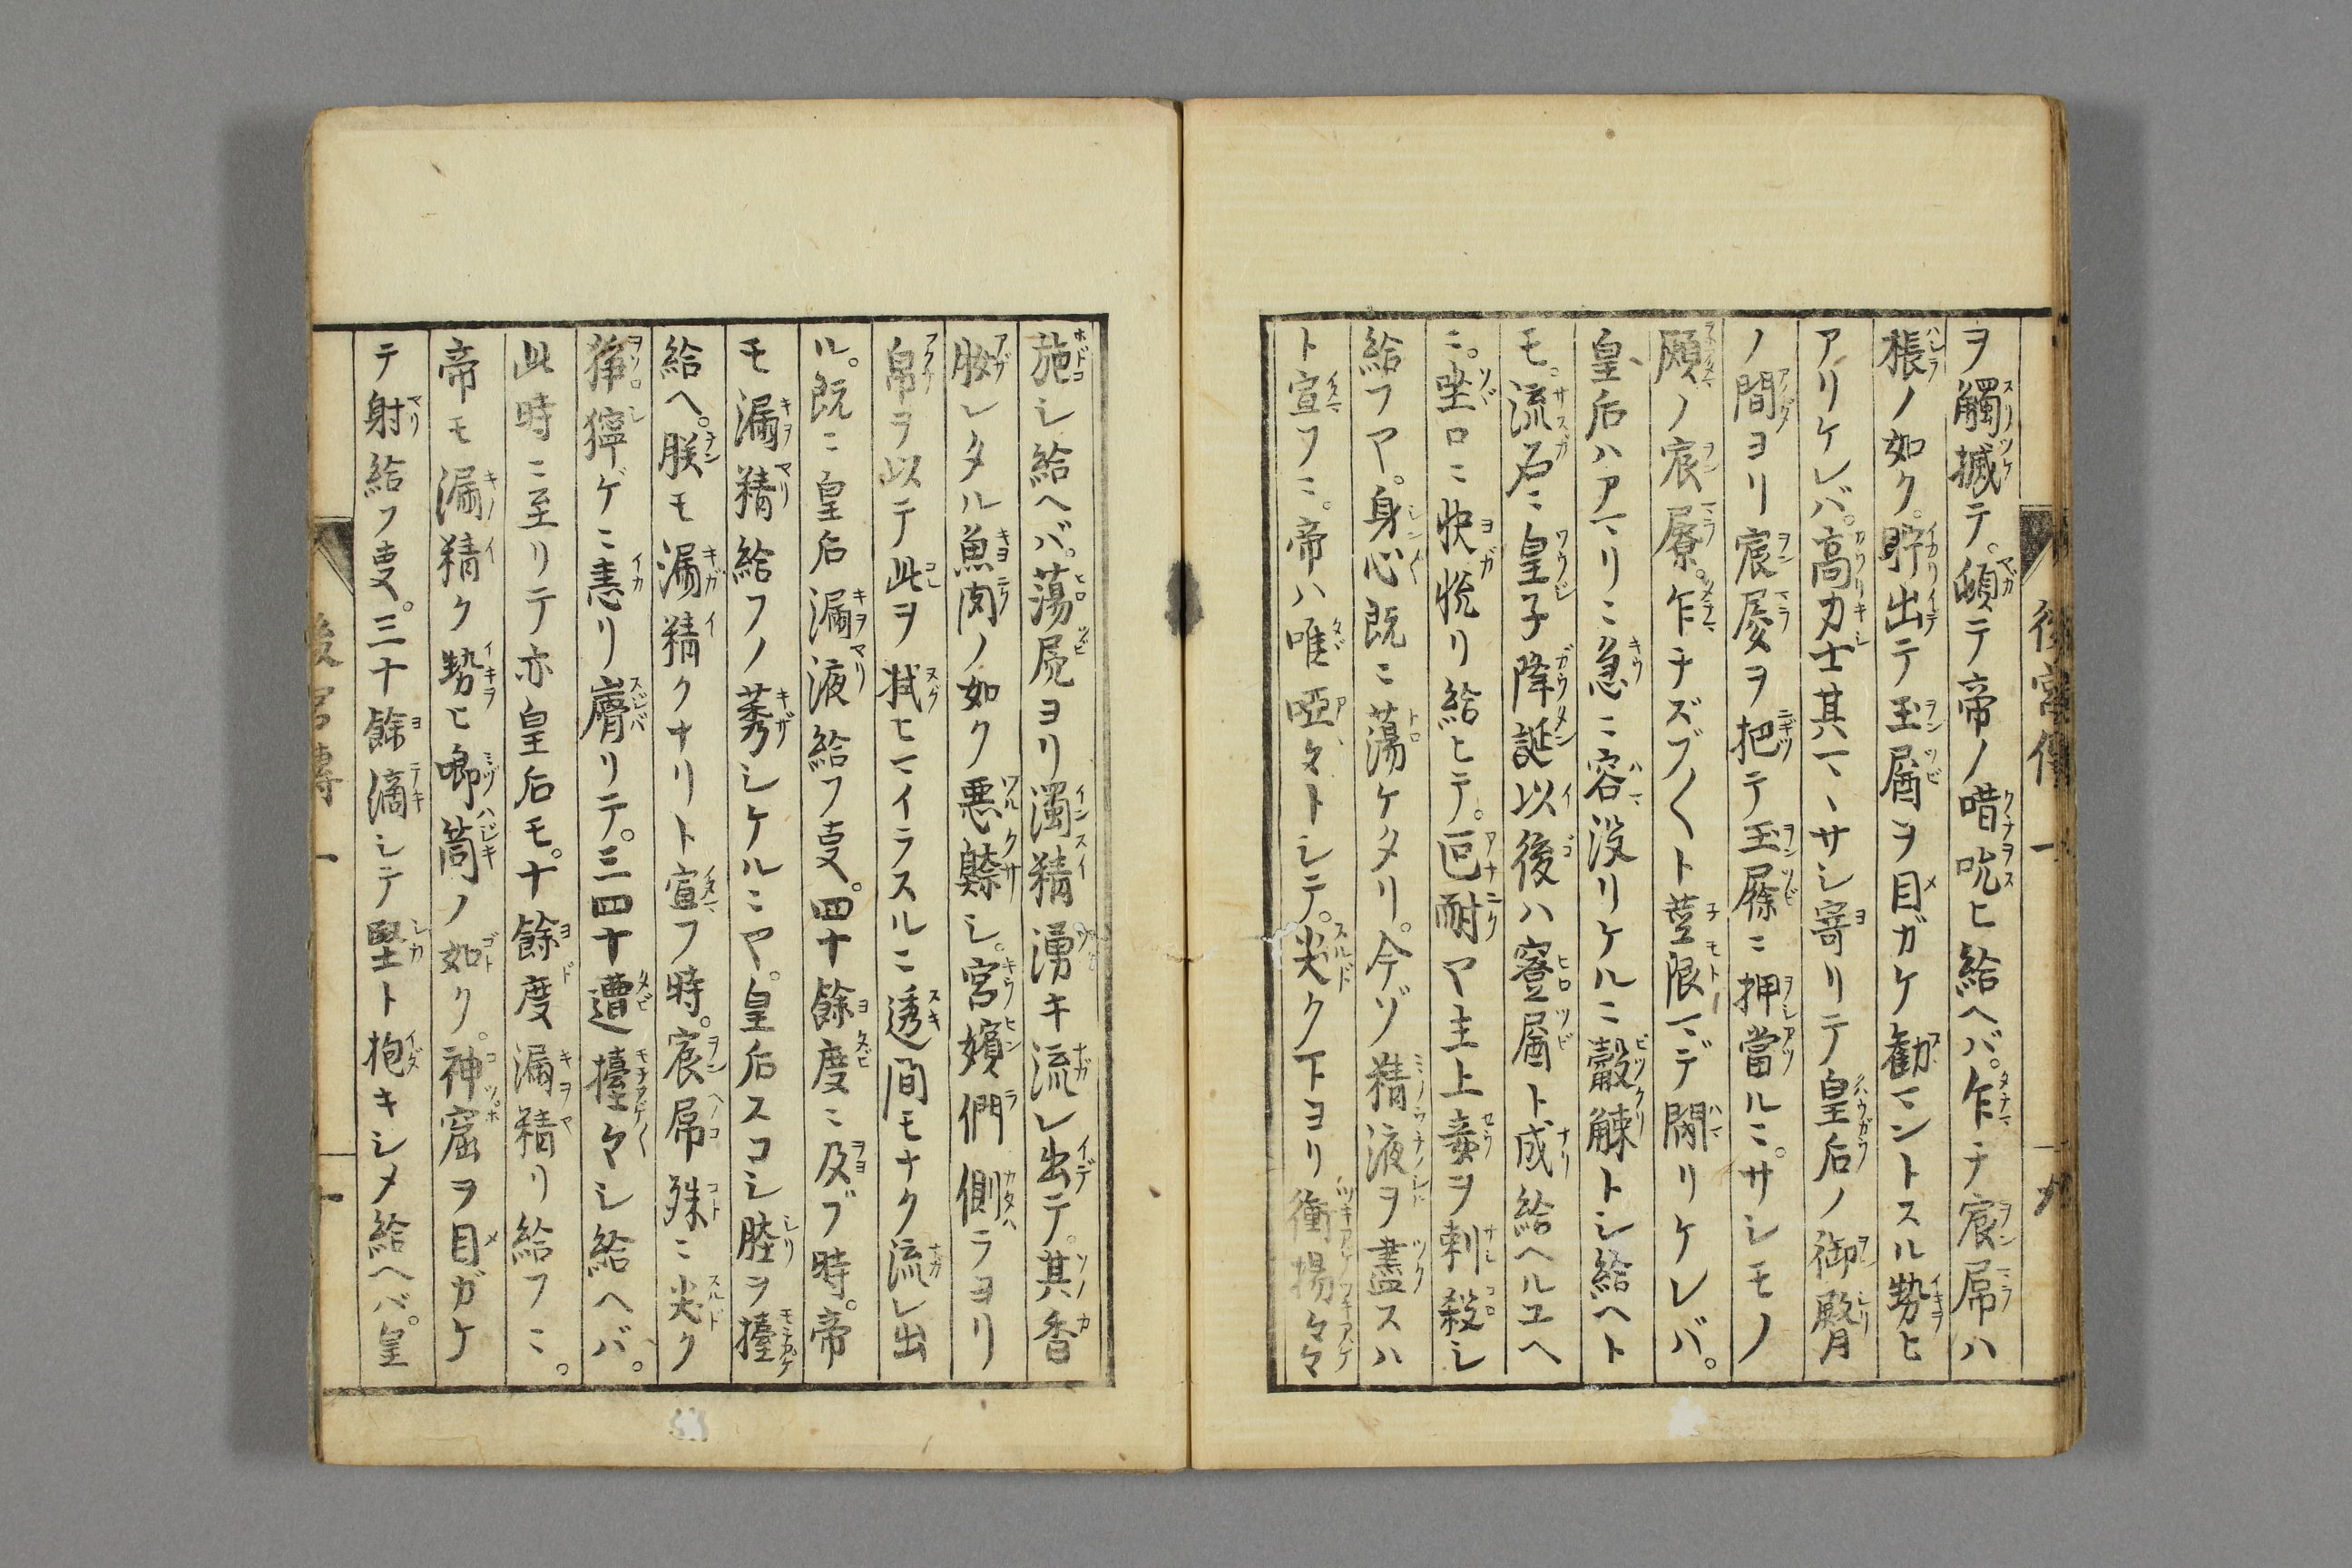 後宮傳 一
ヲ觸撼テ。頔テ帝ノ唶吮ヒ給ヘバ。乍チ宸屌ハ
棖ノ如ク。貯出テ玉㞙ヲ目ガケ勸マントスル㔟ヒ
アリケレバ。高力士其マヽサシ寄リテ皇后ノ御臀
ノ間ヨリ宸㞓ヲ把テ玉㞜ニ押當ルニ。サシモノ
願ノ宸。乍チズブ〳〵ト莖限マデ閷リケレバ。
皇后ハアマリニ急ニ容没リケルニ觳觫トシ給ヘト
モ。流石ニ皇子降誕以後ハ蹇㞙ト成給ヘルユヘ
ニ。坐ロニ快悦リ給ヒテ。叵耐ヤ主上妾ヲ刺殺シ
給フヤ。身心既ニ蕩ケタリ。今ゾ精液ヲ盡スハ
ト宣フニ。帝ハ唯啞々トシテ。尖ク下ヨリ衝揚々々
施シ給ヘバ。蕩屄ヨリ濁精湧キ流レ出テ。其香
胺レタル魚肉ノ如ク悪臊シ。宮嬪們側ラヨリ
帛ヲ以テ此ヲ拭ヒマイラスルニ透間モナク流レ出
ル。既ニ皇后漏液給フ叓。四十餘度ニ及ブ時。帝
モ漏精給フノ莠シケルニヤ。皇后スコシ𦜝ヲ擡
給ヘ。朕モ漏精クナリト宣フ時。宸屌殊ニ尖ク
猙獰ゲニ恚リ膺リテ。三四十遭擡々シ給ヘバ。
此時ニ至リテ亦皇后モ。十餘度漏精リ給フニ。
帝モ漏精ク㔟ヒ喞筒ノ如ク。神窟ヲ目ガケ
テ射給フ叓。三十餘滴シテ堅ト抱キシメ給ヘバ。皇
後宮傳 一